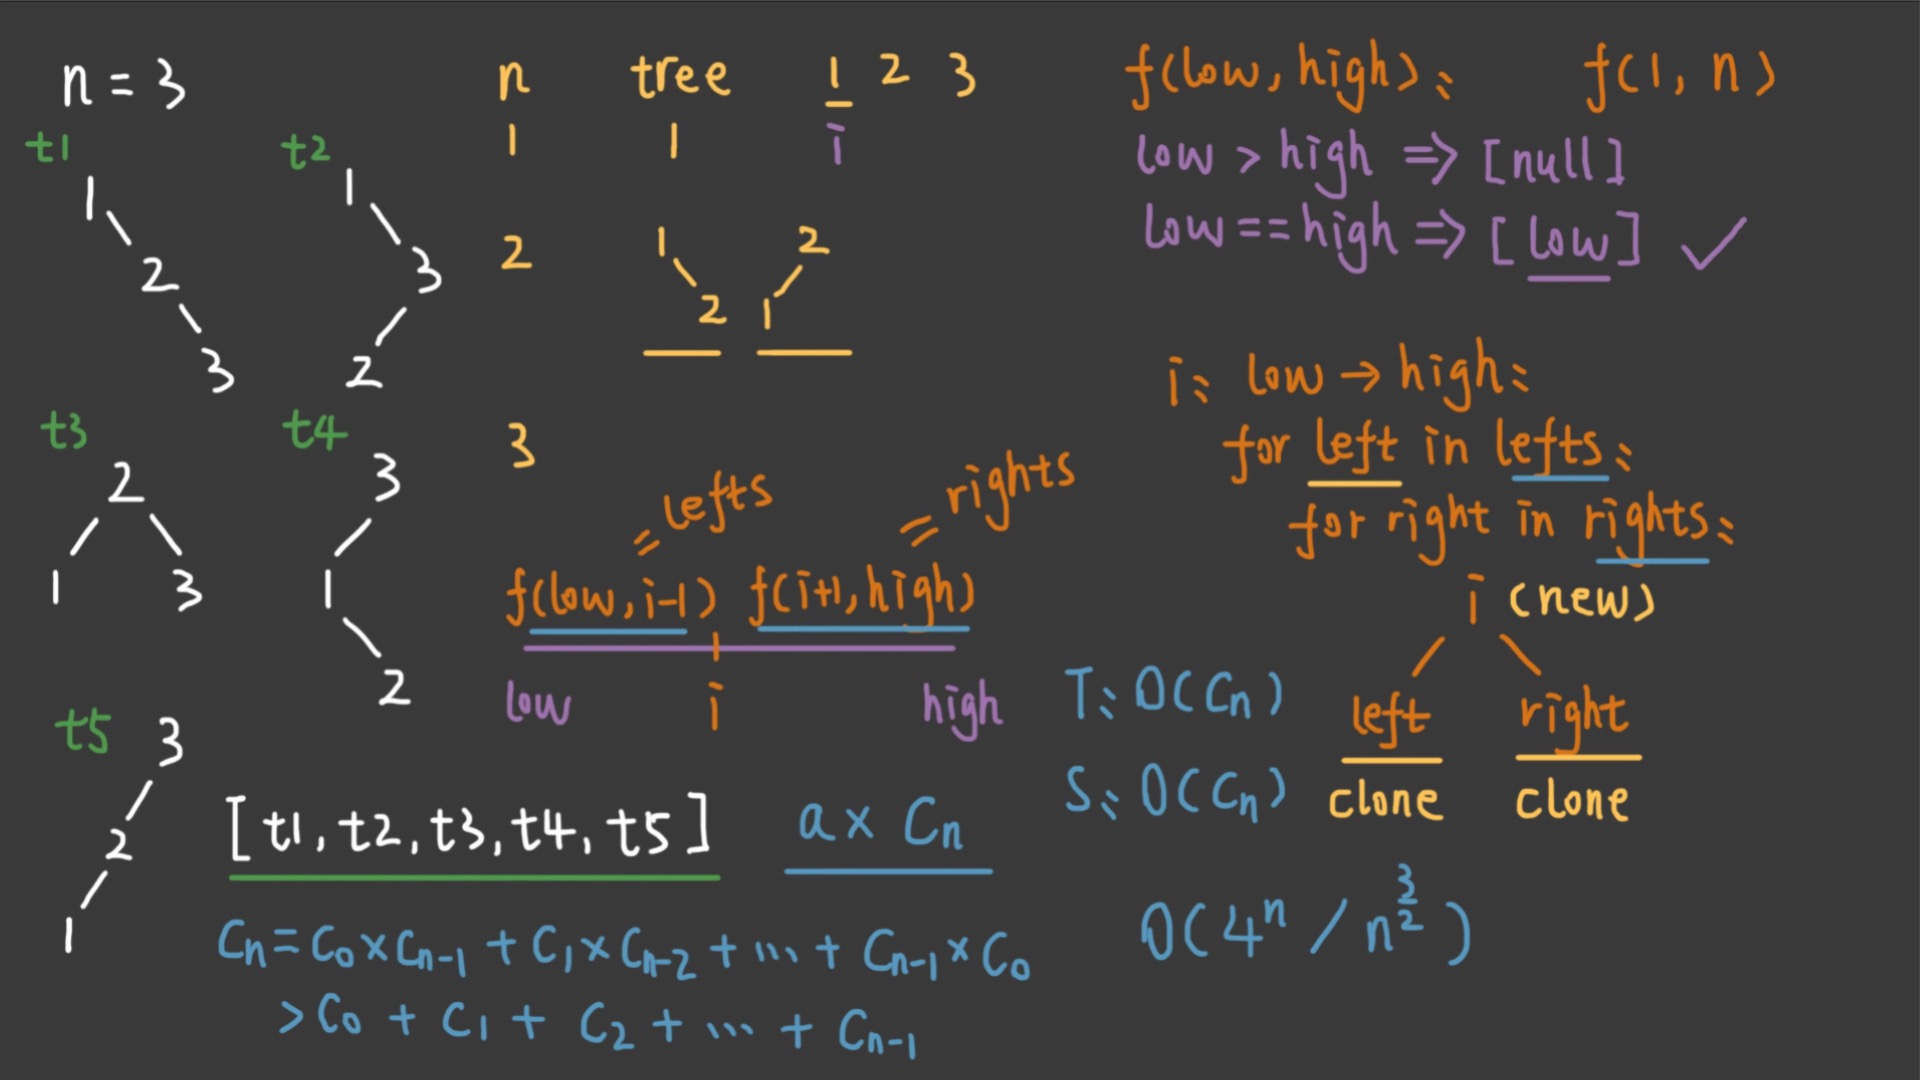 n = 3
t1
1
2
3
t2
1
3
2
t3
2
1
3
t4
3
1
2
t5
3
2
1
n tree 1 2 3
1 1 i
2
1
2
2
1
3
= lefts
= rights
f(low, i-1) f(i+1, high)
low i high
[t1, t2, t3, t4, t5]
a × Cn
Cn = C0 × Cn-1 + C1 × Cn-2 + ... + Cn-1 × C0
> C0 + C1 + C2 + ... + Cn-1
f(low, high): f(1, n)
low > high => [null]
low == high => [low] ✓
i: low → high:
for left in lefts:
for right in rights:
i (new)
left right
clone clone
T: O(Cn)
S: O(Cn)
O(4^n / n^(3/2))